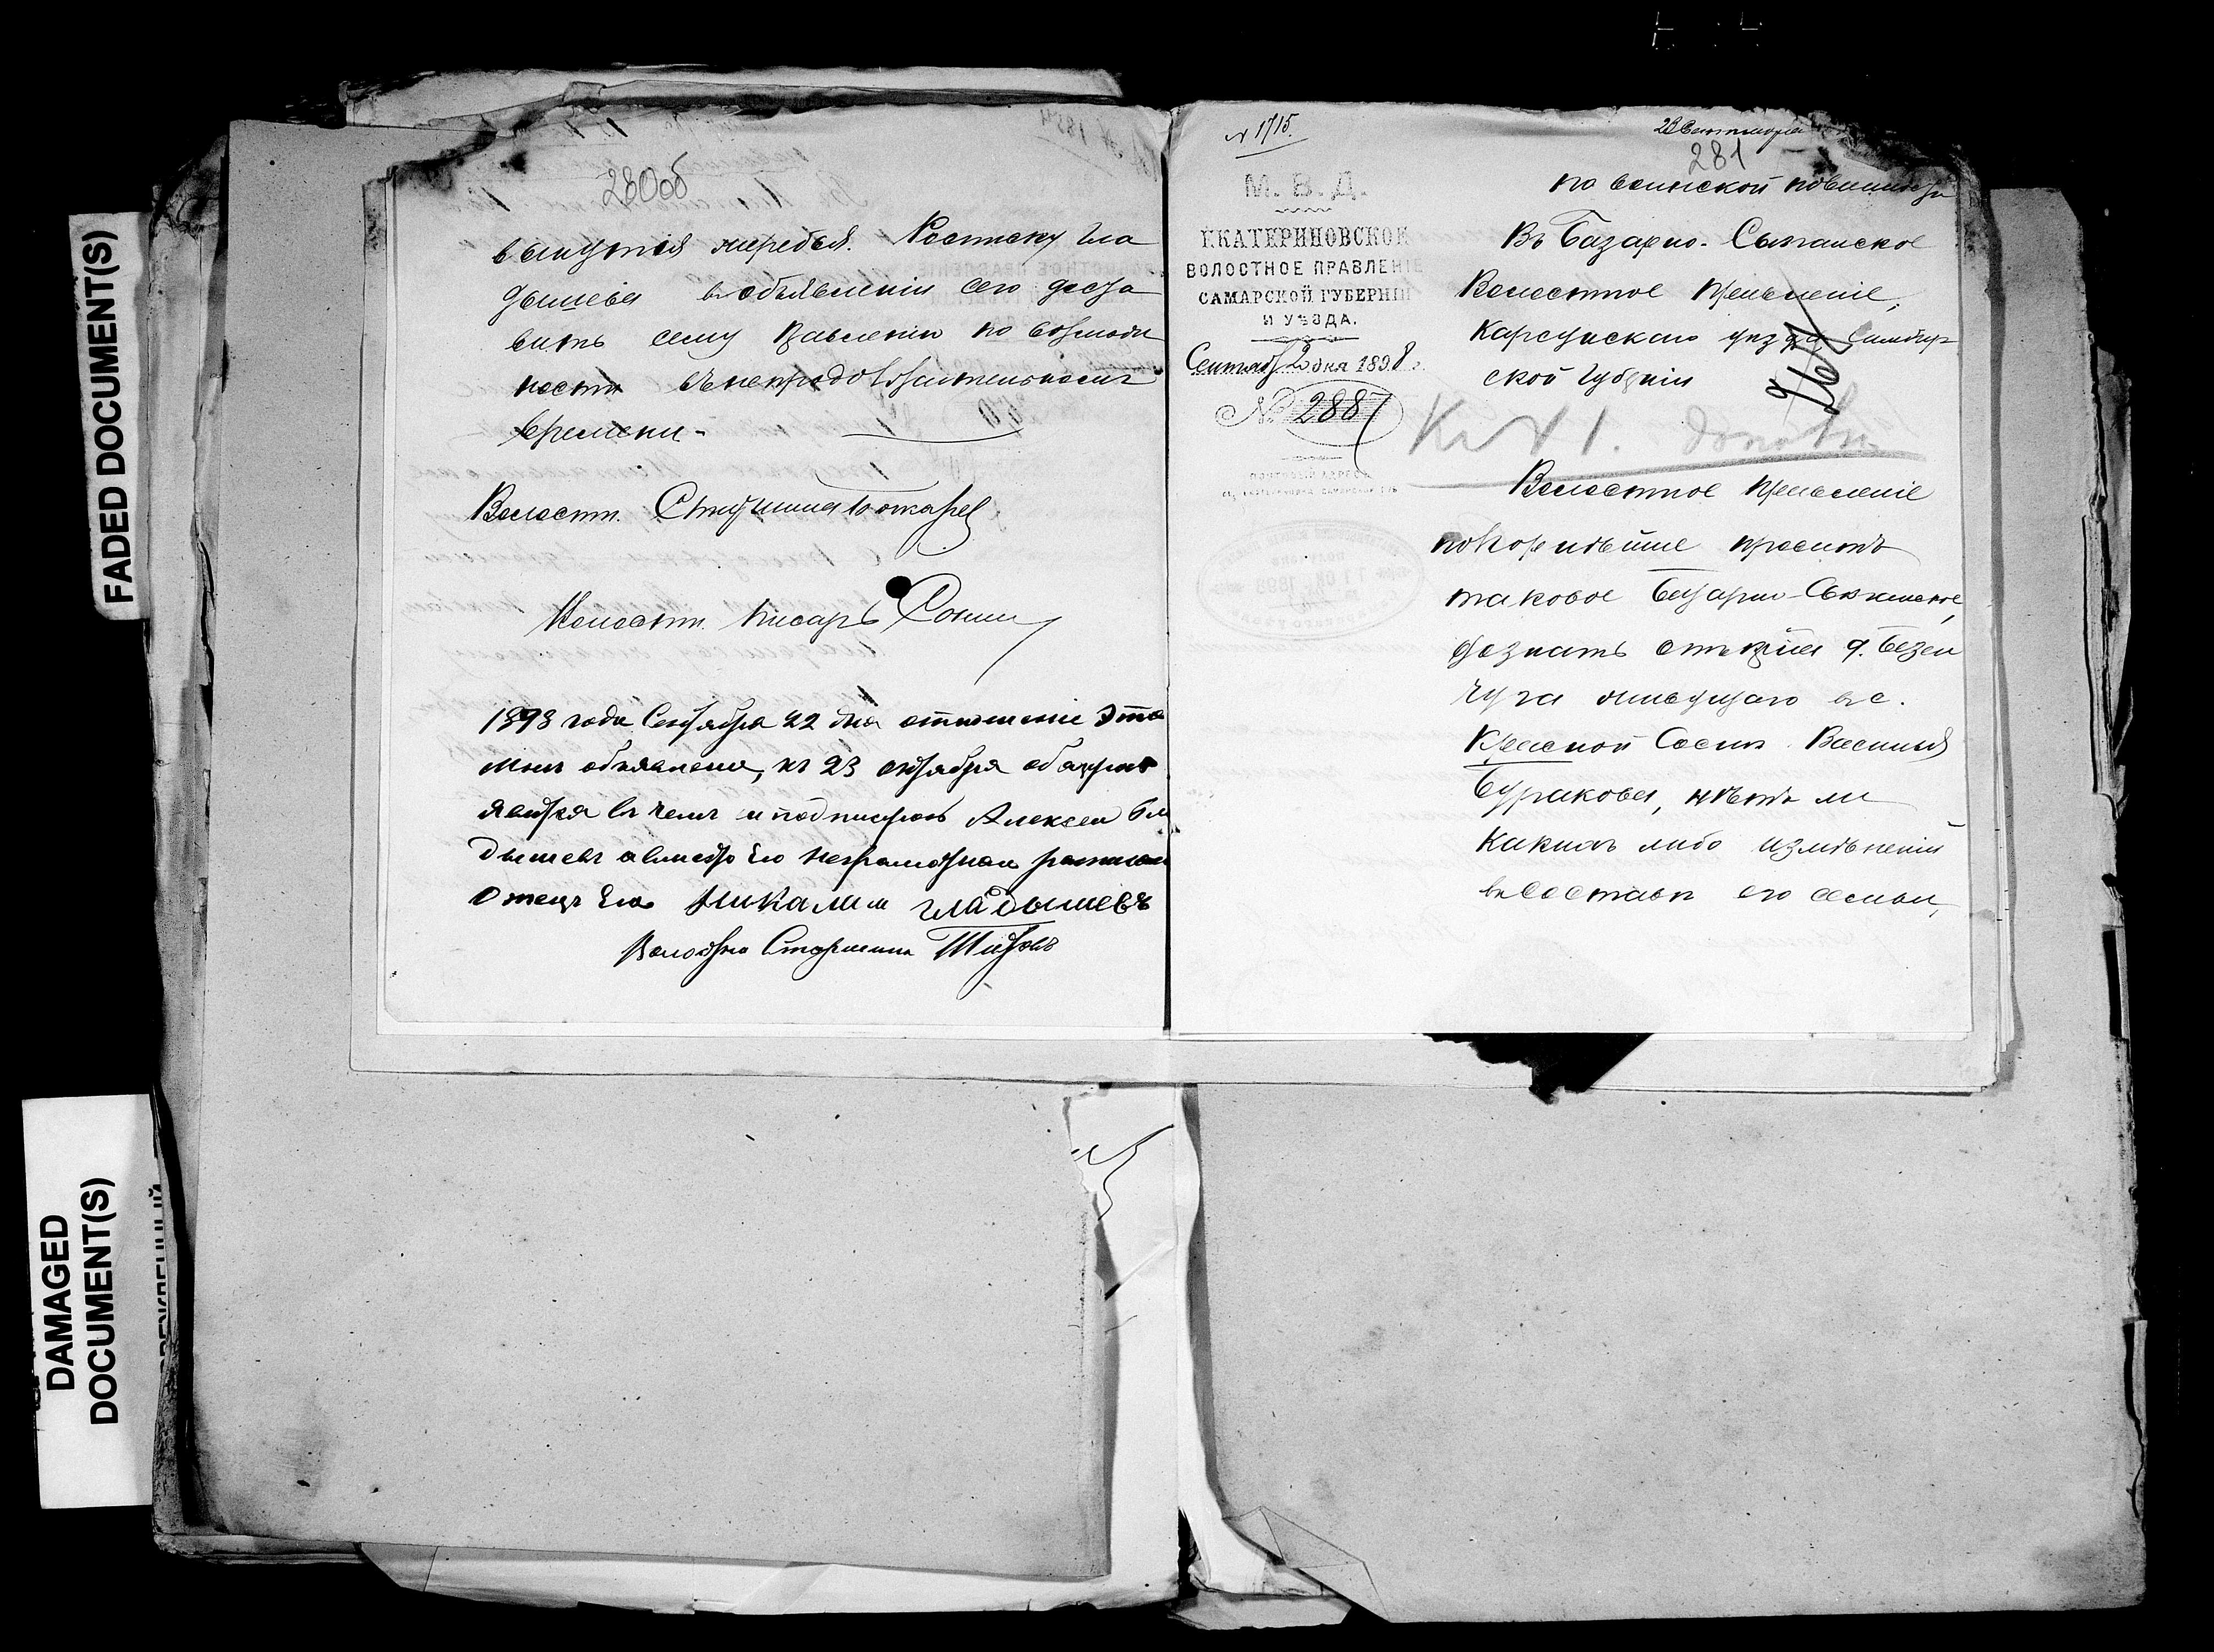 FADED DOCUMENT(S)
DAMAGED
DOCUMENT(S)
280об
вынутія жеребья. Росписку Гла
дышева въ объявленіи сего доста
вить сему Правленію по возможн
ности въ непродолжительномъ
времени.
Волостн. Старшина
Волостн. Писарь
1898 года Сентября 22 дня отношеніе это
мнѣ объявлено, къ 23 октября обязуюсь
явится въ чемъ и подписуюсь Алексей Гла
дышевъ а вместо Его неграмотнаго
Отецъ Его Гладышевъ
Волостно Старшина
№ 1715.
М. В. Д.
ЕКАТЕРИНОВСКОЕ
ВОЛОСТНОЕ ПРАВЛЕНІЕ
САМАРСКОЙ ГУБЕРНІИ
И УѢЗДА.
Сентяб 2 дня 1898 г.
№ 2887
281
по воинской повинности
Въ Базарно-Сызганское
Волостное Правленіе,
Карсунскаго уѣзда Симбир
ской губерніи
Волостное Правленіе
покорнѣйше проситъ
таковое Базарно-Сызганское,
дознать отъ кр-на д. Безен
чуга живущаго въ с.
Красной Соснѣ Василья
Буракова, нѣтъ ли
какихъ либо измѣненій
въ составѣ его семьи,